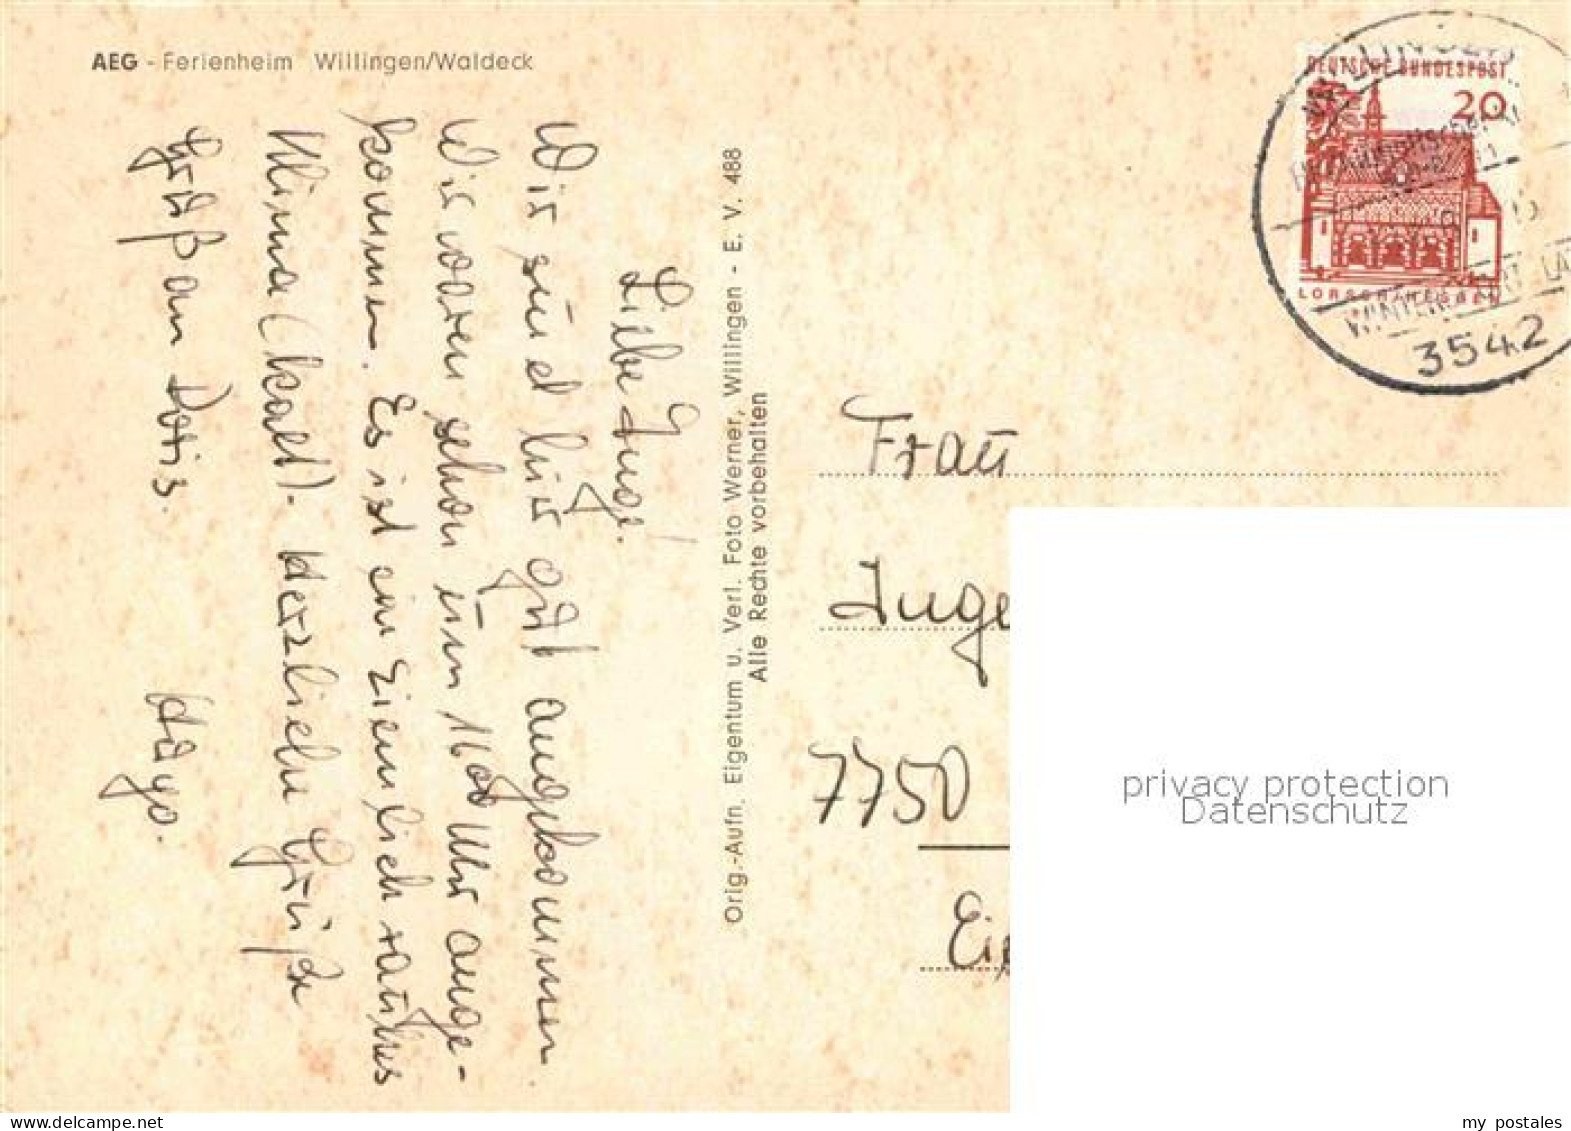 AEG - Ferienheim Willingen/Waldeck
Liebe Inge!
Wir sind hier gut angekommen.
Wir waren schon um 16 00 Uhr ange-
kommen. Es ist ein ziemlich rauhes
Klima (kalt). Herzliche Grüße
Gruß an Doris.
Hayo.
Orig.-Aufn. Eigentum u. Verl. Foto Werner, Willingen - E. V. 488
Alle Rechte vorbehalten
DEUTSCHE BUNDESPOST
20
LORSCH/HESSEN
3542
Frau
Inge
7750
privacy protection
Datenschutz
my postales